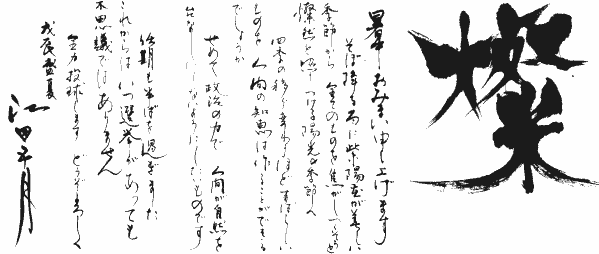 燦
暑中おみまい申し上げます
そぼ降る雨に紫陽花が美しい
季節から 全てのものを焦がしてしまう
燦然と照りつける陽光の季節へ
四季の移り変わりほどすばらしい
ものを 人間の知恵は作ることができる
でしょうか
せめて 政治の力で 人間が自然を
なしにしないようにしたいものです
後期も半ばを過ぎました
これからは いつ選挙があっても
不思議ではありません
全力投球します どうぞよろしく
戊辰盛夏
江田五月